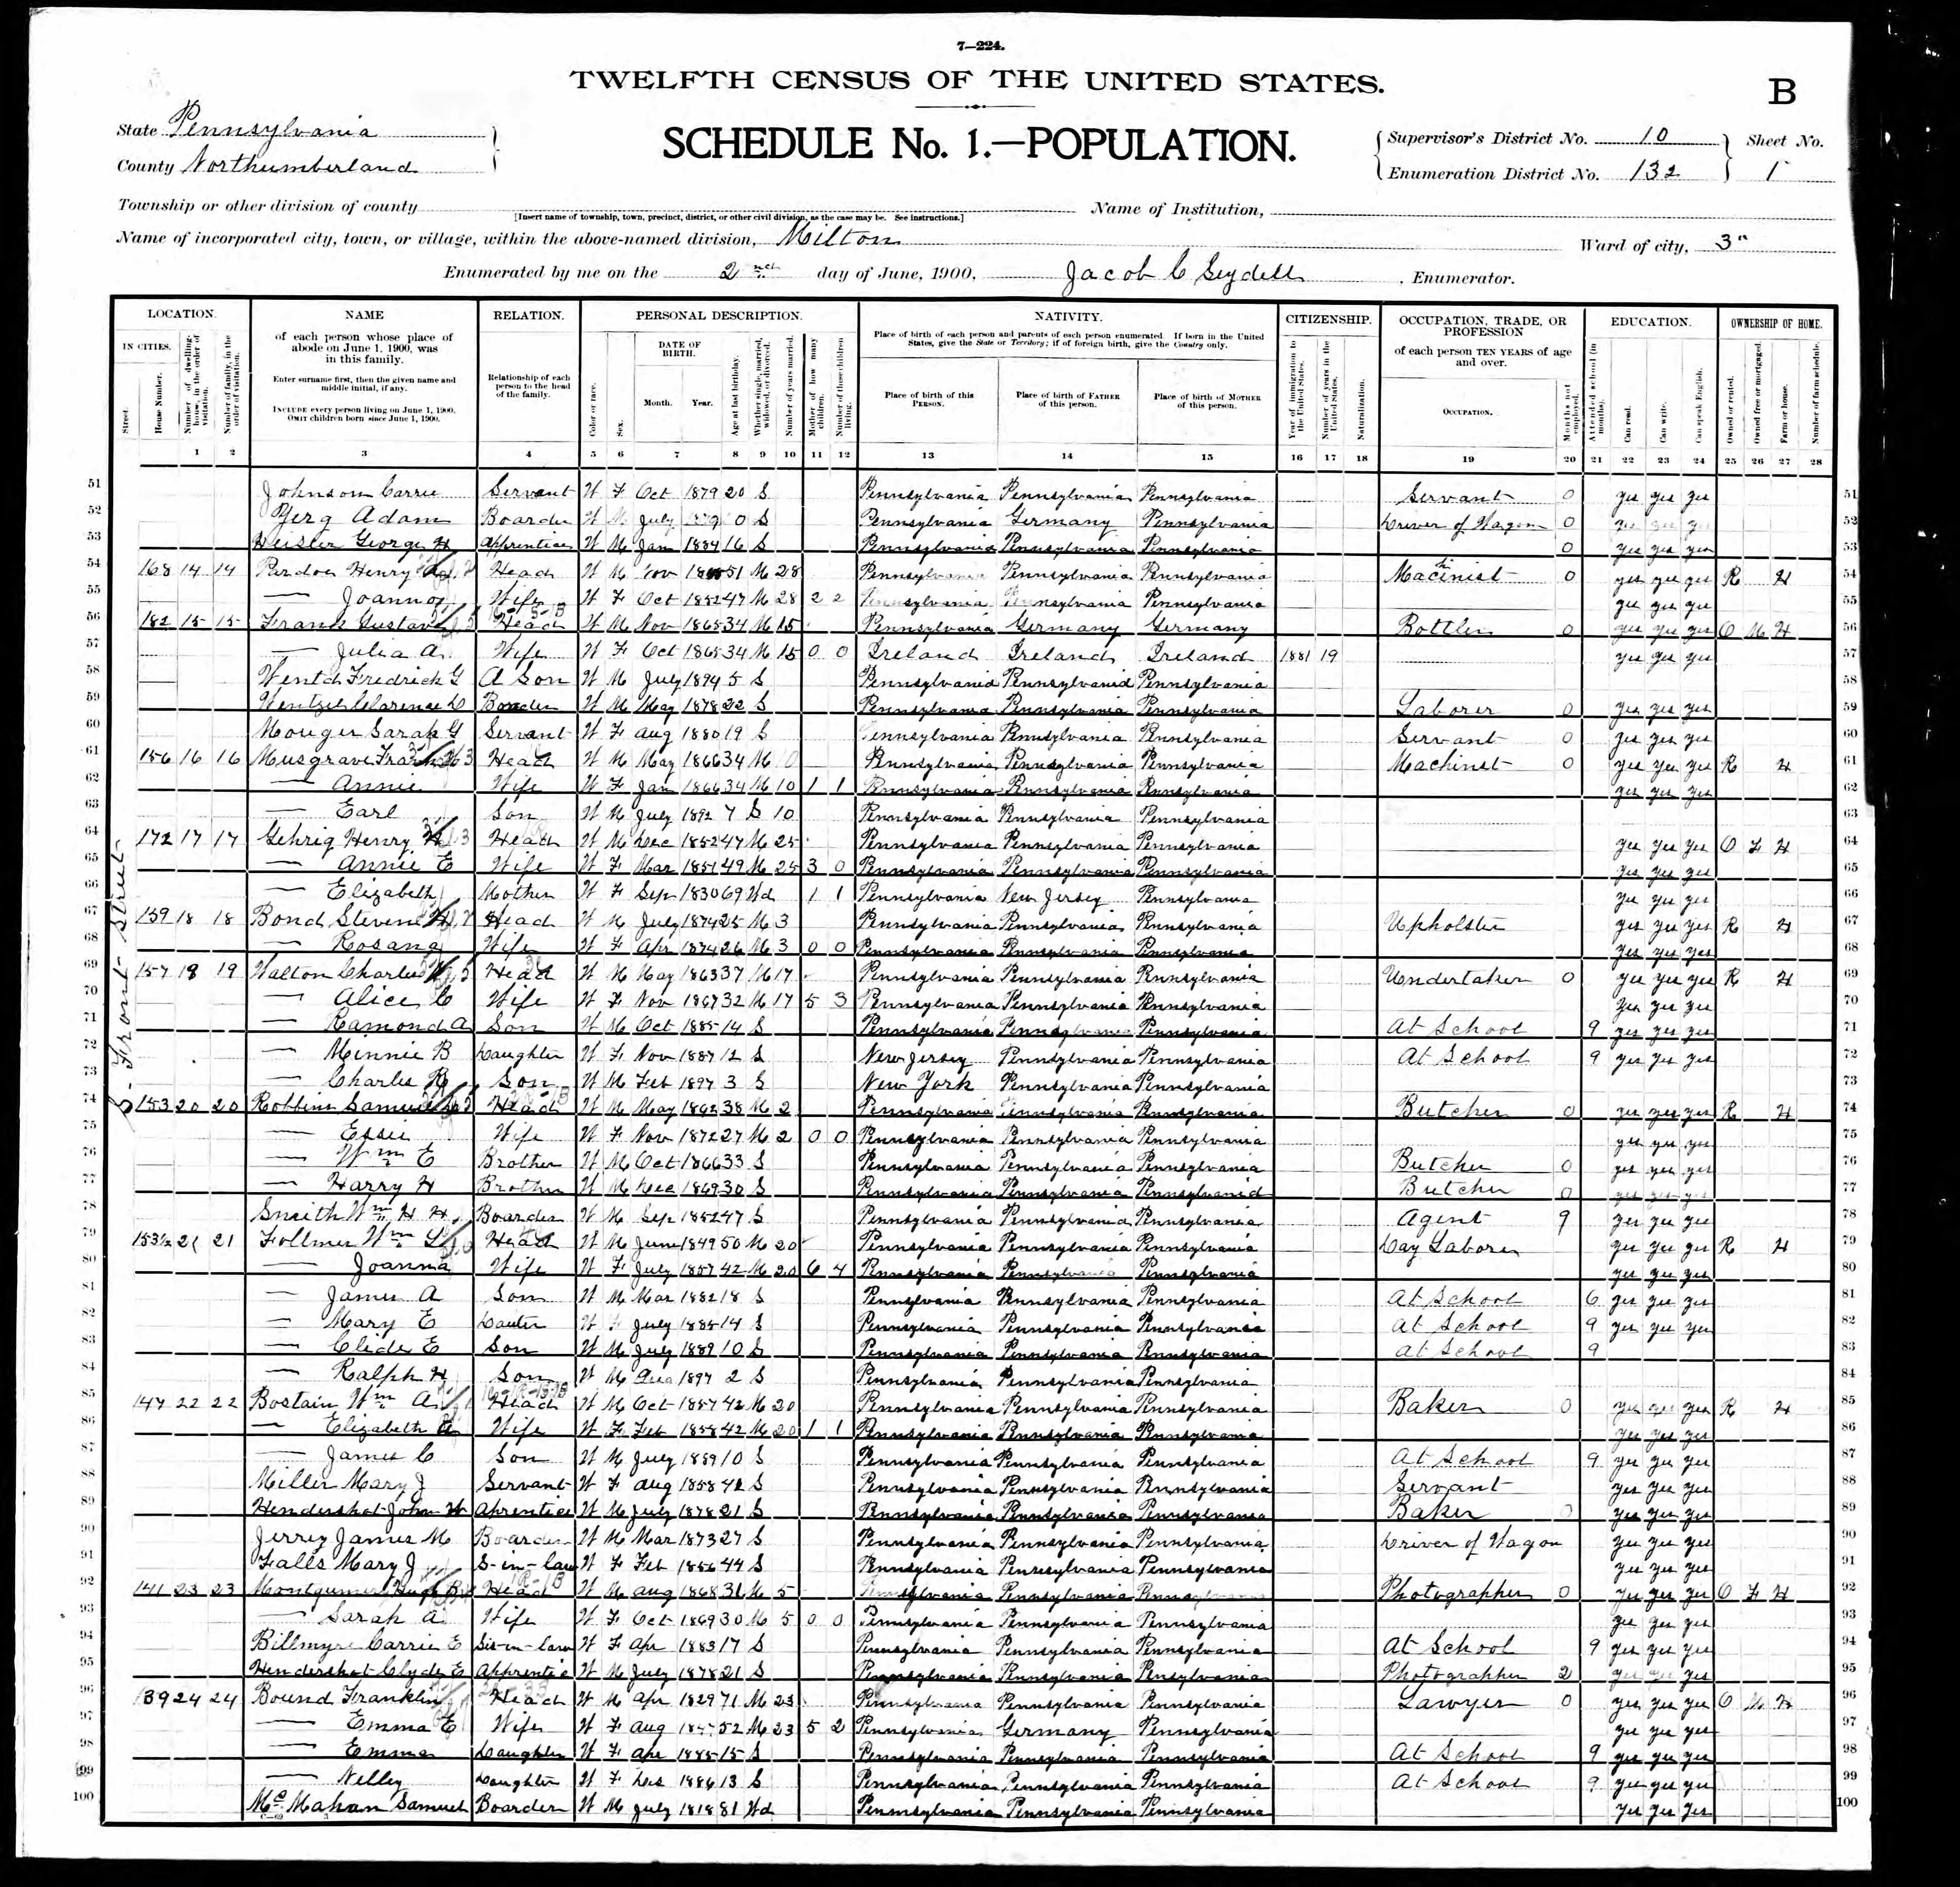 7—224.
TWELFTH CENSUS OF THE UNITED STATES.
B
State Pennsylvania
County Northumberland
SCHEDULE No. 1.—POPULATION.
Supervisor's District No. 10
Enumeration District No. 132
Sheet No.
1
Township or other division of county
[Insert name of township, town, precinct, district, or other civil division, as the case may be. See instructions.]
Name of Institution,
Name of incorporated city, town, or village, within the above-named division, Milton
Ward of city, 3"
Enumerated by me on the 2nd day of June, 1900, Jacob C Seydell, Enumerator.
LOCATION. NAME RELATION. PERSONAL DESCRIPTION. NATIVITY. CITIZENSHIP. OCCUPATION, TRADE, OR PROFESSION EDUCATION. OWNERSHIP OF HOME.
IN CITIES.
Street. House Number. Number of dwelling-house, in the order of visitation. Number of family, in the order of visitation.
of each person whose place of abode on June 1, 1900, was in this family.
Enter surname first, then the given name and middle initial, if any.
INCLUDE every person living on June 1, 1900. OMIT children born since June 1, 1900.
Relationship of each person to the head of the family.
Color or race. Sex. DATE OF BIRTH. Month. Year. Age at last birthday. Whether single, married, widowed, or divorced. Number of years married. Mother of how many children. Number of these children living.
Place of birth of each person and parents of each person enumerated. If born in the United States, give the State or Territory; if of foreign birth, give the Country only.
Place of birth of this PERSON. Place of birth of FATHER of this person. Place of birth of MOTHER of this person.
Year of immigration to the United States. Number of years in the United States. Naturalization.
of each person TEN YEARS of age and over.
OCCUPATION. Months not employed.
Attended school (in months). Can read. Can write. Can speak English.
Owned or rented. Owned free or mortgaged. Farm or house. Number of farm schedule.
1 2 3 4 5 6 7 8 9 10 11 12 13 14 15 16 17 18 19 20 21 22 23 24 25 26 27 28
S. Front Street
51 Johnson Carrie Servant W F Oct 1879 20 S Pennsylvania Pennsylvania Pennsylvania Servant 0 yes yes yes 51
52 Adam Boarder W M July S Pennsylvania Germany Pennsylvania Driver of Wagon 0 yes yes yes 52
53 Heisler George H Apprentice W M Jan 1884 16 S Pennsylvania Pennsylvania Pennsylvania 0 yes yes yes 53
54 168 14 14 Pardoe Henry Head W M Nov 51 M 28 Pennsylvania Pennsylvania Pennsylvania Macinist 0 yes yes yes R H 54
55 — Wife W F Oct 1852 47 M 28 2 2 Pennsylvania Pennsylvania Pennsylvania yes yes yes 55
56 182 15 15 Frank Gustave Head W M Nov 1865 34 M 15 Pennsylvania Germany Germany Bottler 0 yes yes yes O M H 56
57 — Julia A Wife W F Oct 1865 34 M 15 0 0 Ireland Ireland Ireland 1881 19 yes yes yes 57
58 Fredrick G A Son W M July 1894 5 S Pennsylvania Pennsylvania Pennsylvania 58
59 Clarence Boarder W M May 1878 22 S Pennsylvania Pennsylvania Pennsylvania Laborer 0 yes yes yes 59
60 Mouger Sarah G Servant W F Aug 1880 19 S Pennsylvania Pennsylvania Pennsylvania Servant 0 yes yes yes 60
61 156 16 16 Musgrave Frank Head W M May 1866 34 M Pennsylvania Pennsylvania Pennsylvania Machinst 0 yes yes yes R H 61
62 — Annie Wife W F Jan 1866 34 M 10 1 1 Pennsylvania Pennsylvania Pennsylvania yes yes yes 62
63 — Earl Son W M July 1892 7 S 10 Pennsylvania Pennsylvania Pennsylvania 63
64 172 17 17 Gehrig Henry Head W M Dec 1852 47 M 25 Pennsylvania Pennsylvania Pennsylvania yes yes yes O F H 64
65 — Annie E Wife W F Mar 1851 49 M 25 3 0 Pennsylvania Pennsylvania Pennsylvania yes yes yes 65
66 — Elizabeth Mother W F Sep 1830 69 Wd 1 1 Pennsylvania New Jersey Pennsylvania yes yes yes 66
67 159 18 18 Bond Steven Head W M July 1874 25 M 3 Pennsylvania Pennsylvania Pennsylvania Upholster yes yes yes R H 67
68 — Rosana Wife W F Apr 1874 26 M 3 0 0 Pennsylvania Pennsylvania Pennsylvania yes yes yes 68
69 157 19 19 Walton Charles Head W M May 1863 37 M 17 Pennsylvania Pennsylvania Pennsylvania Undertaker 0 yes yes yes R H 69
70 — Alice C Wife W F Nov 1867 32 M 17 5 3 Pennsylvania Pennsylvania Pennsylvania yes yes yes 70
71 — Ramond A Son W M Oct 1885 14 S Pennsylvania Pennsylvania Pennsylvania At School 9 yes yes yes 71
72 — Minnie B Daughter W F Nov 1887 12 S New Jersey Pennsylvania Pennsylvania At School 9 yes yes yes 72
73 — Charles R Son W M Feb 1897 3 S New York Pennsylvania Pennsylvania 73
74 153 20 20 Robbins Samuel Head W M May 1862 38 M 2 Pennsylvania Pennsylvania Pennsylvania Butcher 0 yes yes yes R H 74
75 — Essie Wife W F Nov 1872 27 M 2 0 0 Pennsylvania Pennsylvania Pennsylvania yes yes yes 75
76 — Wm E Brother W M Oct 1866 33 S Pennsylvania Pennsylvania Pennsylvania Butcher 0 yes yes yes 76
77 — Harry H Brother W M Dec 1869 30 S Pennsylvania Pennsylvania Pennsylvania Butcher 0 yes yes yes 77
78 Smith Wm H H Boarder W M Sep 1852 47 S Pennsylvania Pennsylvania Pennsylvania Agent 9 yes yes yes 78
79 153½ 21 21 Follmer Wm Head W M June 1849 50 M 20 Pennsylvania Pennsylvania Pennsylvania Day Laborer yes yes yes R H 79
80 — Joanna Wife W F July 1857 42 M 20 6 4 Pennsylvania Pennsylvania Pennsylvania yes yes yes 80
81 — James A Son W M Mar 1882 18 S Pennsylvania Pennsylvania Pennsylvania At School 6 yes yes yes 81
82 — Mary E Dauter W F July 1885 14 S Pennsylvania Pennsylvania Pennsylvania At School 9 yes yes yes 82
83 — Clide E Son W M July 1889 10 S Pennsylvania Pennsylvania Pennsylvania At School 9 83
84 — Ralph H Son W M Aug 1897 2 S Pennsylvania Pennsylvania Pennsylvania 84
85 147 22 22 Bostain Wm A Head W M Oct 1857 42 M 20 Pennsylvania Pennsylvania Pennsylvania Baker 0 yes yes yes R H 85
86 — Elizabeth Wife W F Feb 1858 42 M 20 1 1 Pennsylvania Pennsylvania Pennsylvania yes yes yes 86
87 — James C Son W M July 1889 10 S Pennsylvania Pennsylvania Pennsylvania At School 9 yes yes yes 87
88 Miller Mary J Servant W F Aug 1858 42 S Pennsylvania Pennsylvania Pennsylvania Servant yes yes yes 88
89 Hendershot John W Aprentice W M July 1878 21 S Pennsylvania Pennsylvania Pennsylvania Baker 0 yes yes yes 89
90 Jerrey James M Boarder W M Mar 1873 27 S Pennsylvania Pennsylvania Pennsylvania Driver of Wagon yes yes yes 90
91 Falls Mary J S-in-law W F Feb 1856 44 S Pennsylvania Pennsylvania Pennsylvania yes yes yes 91
92 141 23 23 Montgumery Hugh B Head W M Aug 1868 31 M 5 Pennsylvania Pennsylvania Pennsylvania Photographer 0 yes yes yes O F H 92
93 — Sarah A Wife W F Oct 1869 30 M 5 0 0 Pennsylvania Pennsylvania Pennsylvania yes yes yes 93
94 Billmyre Carrie E Sis-in-law W F Apr 1883 17 S Pennsylvania Pennsylvania Pennsylvania At School 9 yes yes yes 94
95 Hendershot Clyde E Apprentice W M July 1878 21 S Pennsylvania Pennsylvania Pensylvania Photographer 2 yes yes yes 95
96 139 24 24 Bound Franklin Head W M Apr 1829 71 M 23 Pennsylvania Pennsylvania Pennsylvania Lawyer 0 yes yes yes O M H 96
97 — Emma E Wife W F Aug 1847 52 M 23 5 2 Pennsylvania Germany Pennsylvania yes yes yes 97
98 — Emma Daughter W F Apr 1885 15 S Pennsylvania Pennsylvania Pennsylvania At School 9 yes yes yes 98
99 — Nelley Daughter W F Dec 1886 13 S Pennsylvania Pennsylvania Pennsylvania At School 9 yes yes yes 99
100 McMahan Samuel Boarder W M July 1818 81 Wd Pennsylvania Pennsylvania Pennsylvania yes yes yes 100